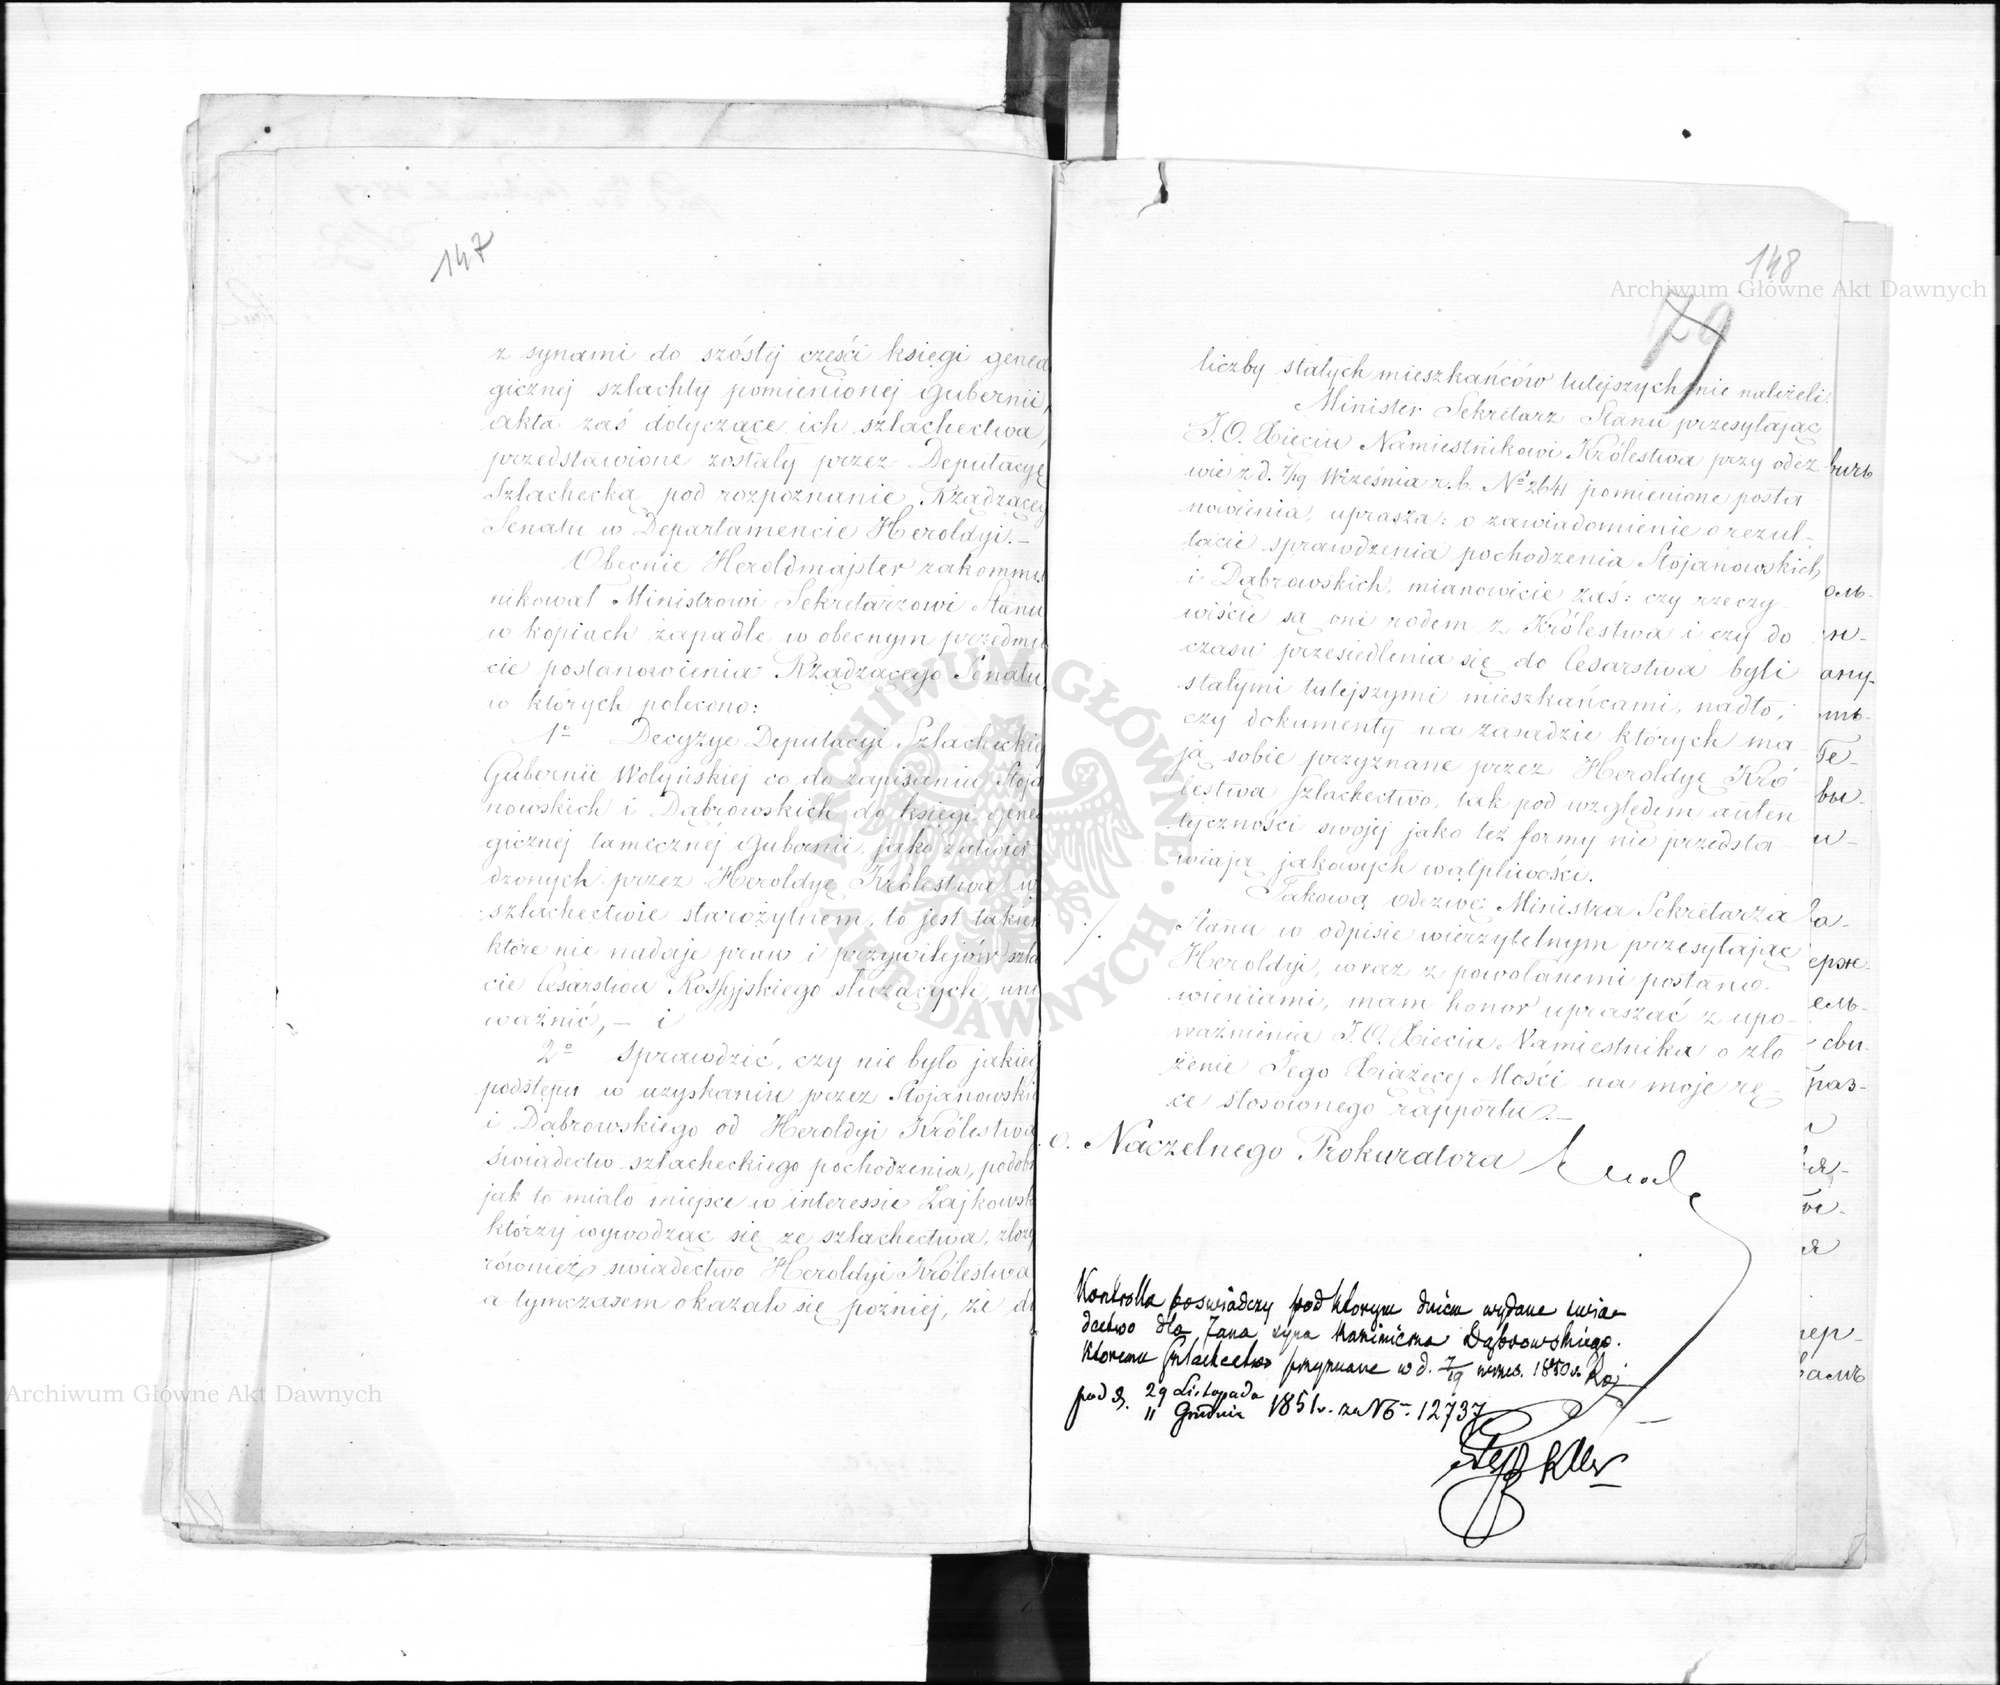 147
z synami do szóstej części księgi genea
gicznej szlachty pomienionej Gubernii,
akta zaś dotyczące ich szlachectwa,
przedstawione zostały przez Deputacyę
Szlachecką pod rozpoznanie Rządzącey
Senatu w Departamencie Heroldyi.—
Obecnie Heroldmajster zakommu
nikował Ministrowi Sekretarzowi Stanu
w kopiach zapadłe w obecnym przedmio
cie postanowienia Rządzącego Senatu,
w których polecono:
1º Decyzye Deputacyi Szlacheckiej
Gubernii Wołyńskiej co do zapisania Stoja
nowskich i Dąbrowskich do księgi genea
gicznej tamecznej Gubernii, jako zatwier
dzonych przez Heroldyę Królestwa w
szlachectwie starożytnem, to jest takiem
które nie nadaje praw i przywilejów szla
cie Cesarstwa Rossyjskiego służących, unie
ważnić,— i
2º Sprawdzić, czy nie było jakieg
podstępu w uzyskaniu przez Stojanowskie
i Dąbrowskiego od Heroldyi Królestwa
świadectw szlacheckiego pochodzenia, podobn
jak to miało miejsce w interessie Zajkowsk
którzy wywodząc się ze szlachectwa, złoży
również świadectwo Heroldyi Królestwa
a tymczasem okazało się później, że do
148
79
Archiwum Główne Akt Dawnych
liczby stałych mieszkańców tutejszych nie należeli.
Minister Sekretarz Stanu przesyłając
J.O. Xięciu Namiestnikowi Królestwa przy odez
wie z d. 7/19 Września r.b. Nº 2641 pomienione posta
nowienia, uprasza: o zawiadomienie o rezul-
tacie sprawdzenia pochodzenia Stojanowskich
i Dąbrowskich, mianowicie zaś: czy rzeczy-
wiście są oni rodem z Królestwa i czy do
czasu przesiedlenia się do Cesarstwa byli
stałymi tutejszymi mieszkańcami, nadto,
czy dokumenty na zasadzie których ma-
ją sobie przyznane przez Heroldyę Kró-
lestwa Szlachectwo, tak pod względem auten
tyczności swojej jako też formy nie przedsta-
wiają jakowych wątpliwości.
Takową odezwę Ministra Sekretarza
Stanu w odpisie wierzytelnym przesyłając
Heroldyi, wraz z powołanemi postano-
wieniami, mam honor upraszać z upo-
ważnienia J.O. Xięcia Namiestnika o zło
żenie Jego Xiążęcej Mości na moje rę-
ce stosownego rapportu.—
o. Naczelnego Prokuratora
Kontrolla poświadczy pod którym dniem wydane świa-
dectwo dla Jana syna Kazimierza Dąbrowskiego,
któremu szlachectwo przyznane w d. 7/19 wrześ. 1850 r.
pod d. 29 Listopada / 11 Grudnia 1851 r. za Nº 12737
ARCHIWUM GŁÓWNE AKT DAWNYCH
Archiwum Główne Akt Dawnych